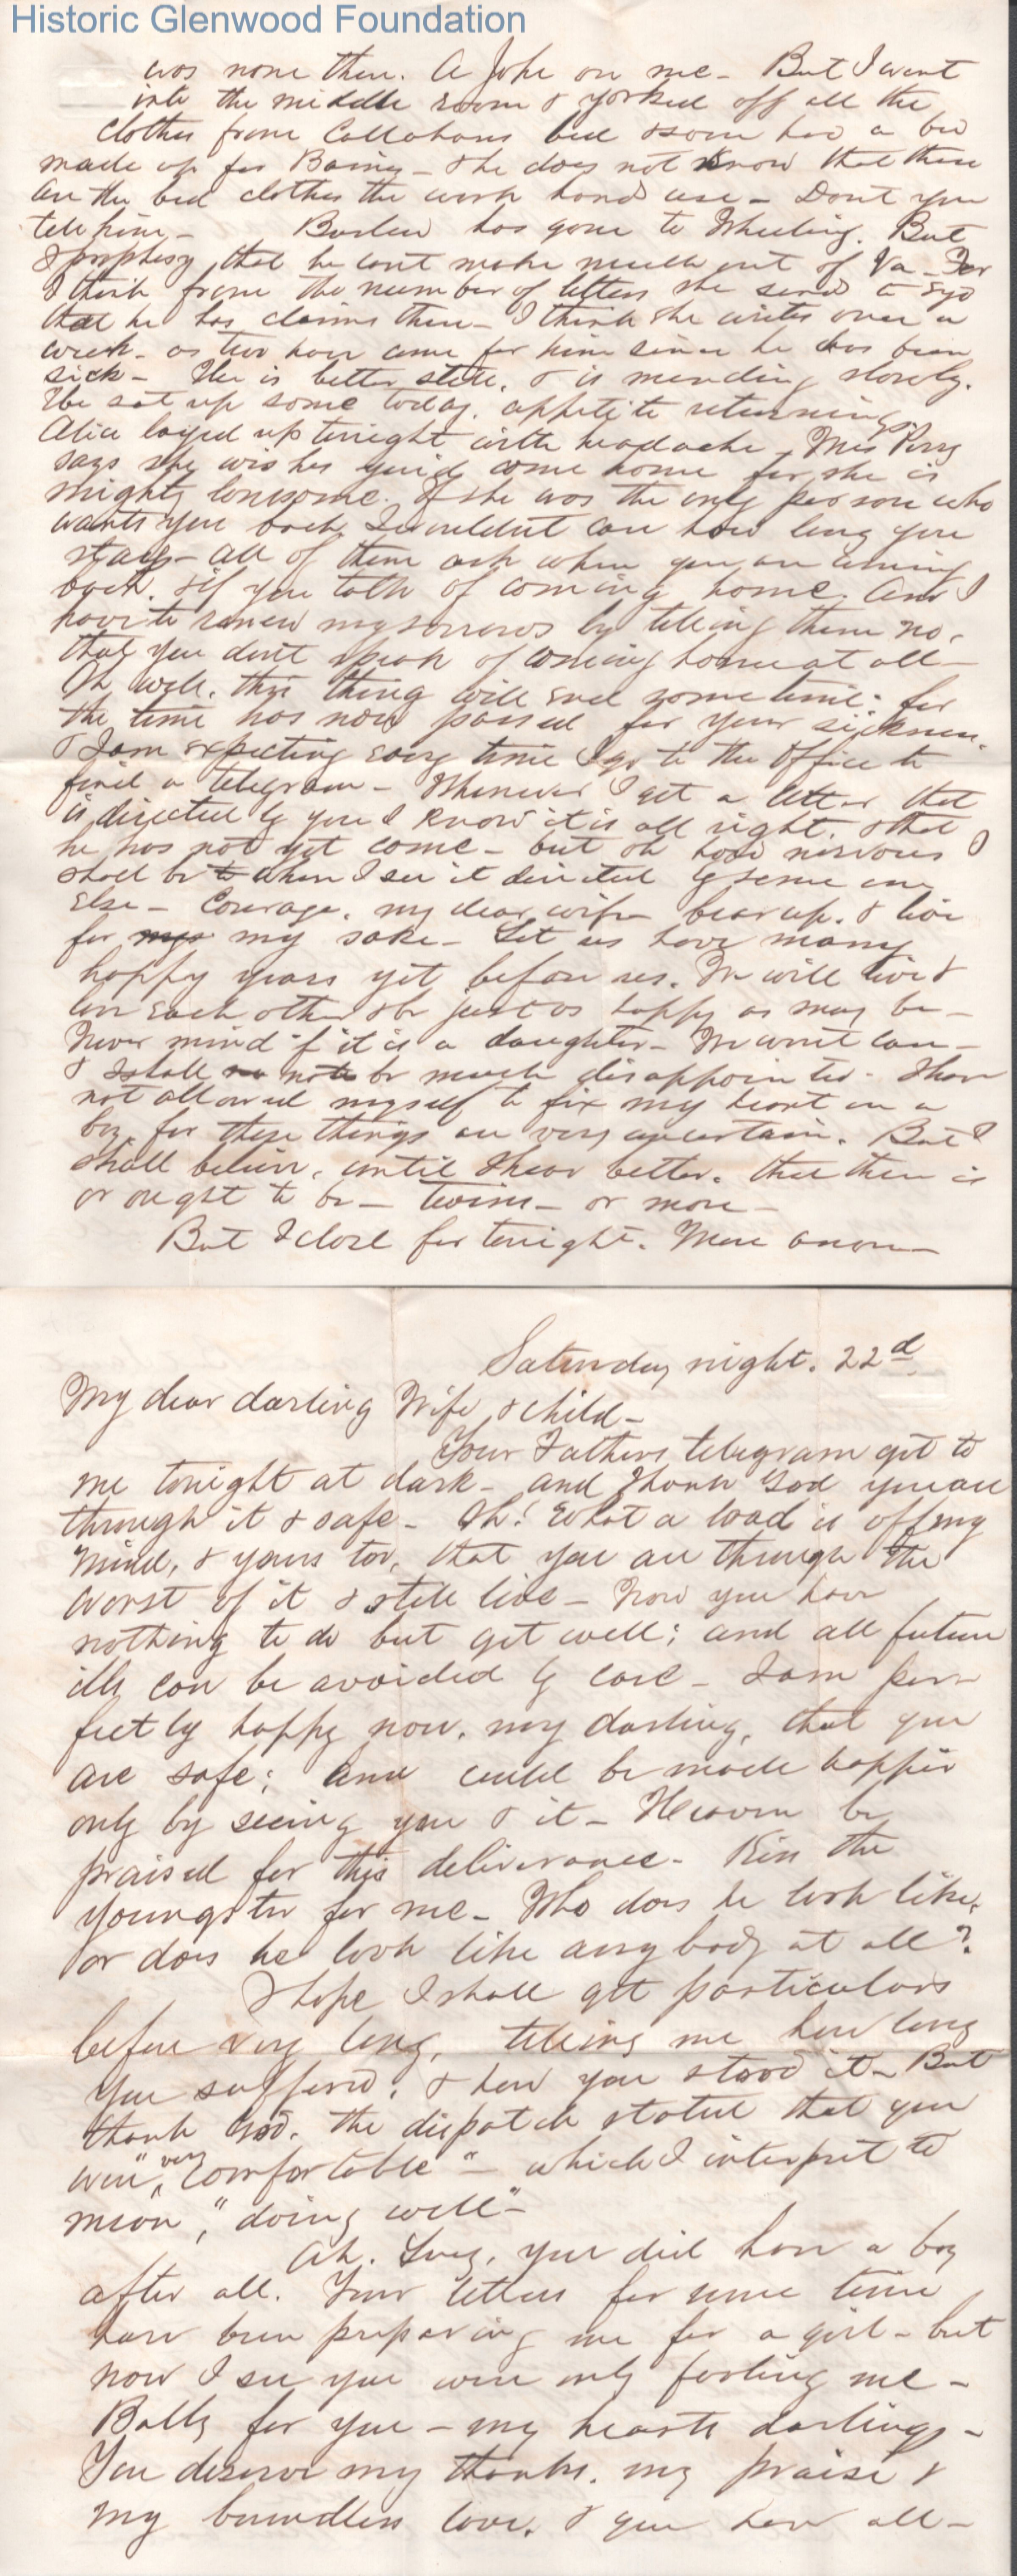 Historic Glenwood Foundation
was none then. A Joke on me - But I went
into the middle room & yorked off all the
clothes from Callahans bed & soon had a bed
made up for - & he does not know that these
are the bed clothes the work hands use - Dont you
tell him - has gone to Wheeling. But
I prophesy that he cant make much out of Va - For
I think from the number of letters she sends to Syd
that he has claims there - I think she writes once a
week - as two have come for him since he has been
sick - He is better still, & is mending slowly.
He sat up some today. appetite returning.
Alice layed up tonight with headache. Mrs Perry
says she wishes you'd come home for she is
mighty lonesome. If she was the only person who
wants you back, I wouldnt care how long you
stay - all of them ask when you are coming
back. & if you talk of coming home. And I
have to renew my sorrows by telling them no,
that you dont speak of coming home at all -
Oh well. this thing will end some time: for
the time has now passed for your sickness.
& I am expecting every time I go to the Office to
find a telegram - Whenever I get a letter that
is directed by you I know it is all right. & that
he has not yet come - but oh how nervous I
shall be when I see it directed by some one
else - Courage. my dear wife bear up. & live
for my sake - Let us have many
happy years yet before us. We will live &
love each other & be just as happy as may be -
Never mind if it is a daughter - We wont care -
& I shall not be much disappointed - I have
not allowed myself to fix my heart on a
boy. for these things are very uncertain. But I
shall believe, until I hear better. that there is
or ought to be - twins - or more -
But I close for tonight. More anon -
Saturday night. 22d
My dear darling Wife & child -
Your Fathers telegram got to
me tonight at dark - and I thank God you are
through it & safe - Oh! What a load is off my
mind, & yours too, that you are through the
worst of it & still live - Now you have
nothing to do but get well; and all future
ills can be avoided by care - I am per
fectly happy now. my darling, that you
are safe; and could be made happier
only by seeing you & it - Heaven be
praised for this deliverance - Kiss the
youngster for me - Who does he look like,
or does he look like any body at all?
I hope I shall get particulars
before very long, telling me how long
you suffered, & how you stood it - But
thank God. the dispatch stated that you
were "very comfortable" - which I interpret to
mean, "doing well" -
Ah. Lucy, you did have a boy
after all. Your letters for some time
have been preparing me for a girl - but
now I see you were only fooling me -
Bully for you - my hearts darling -
You deserve my thanks. my praise &
my boundless love. & you have all -